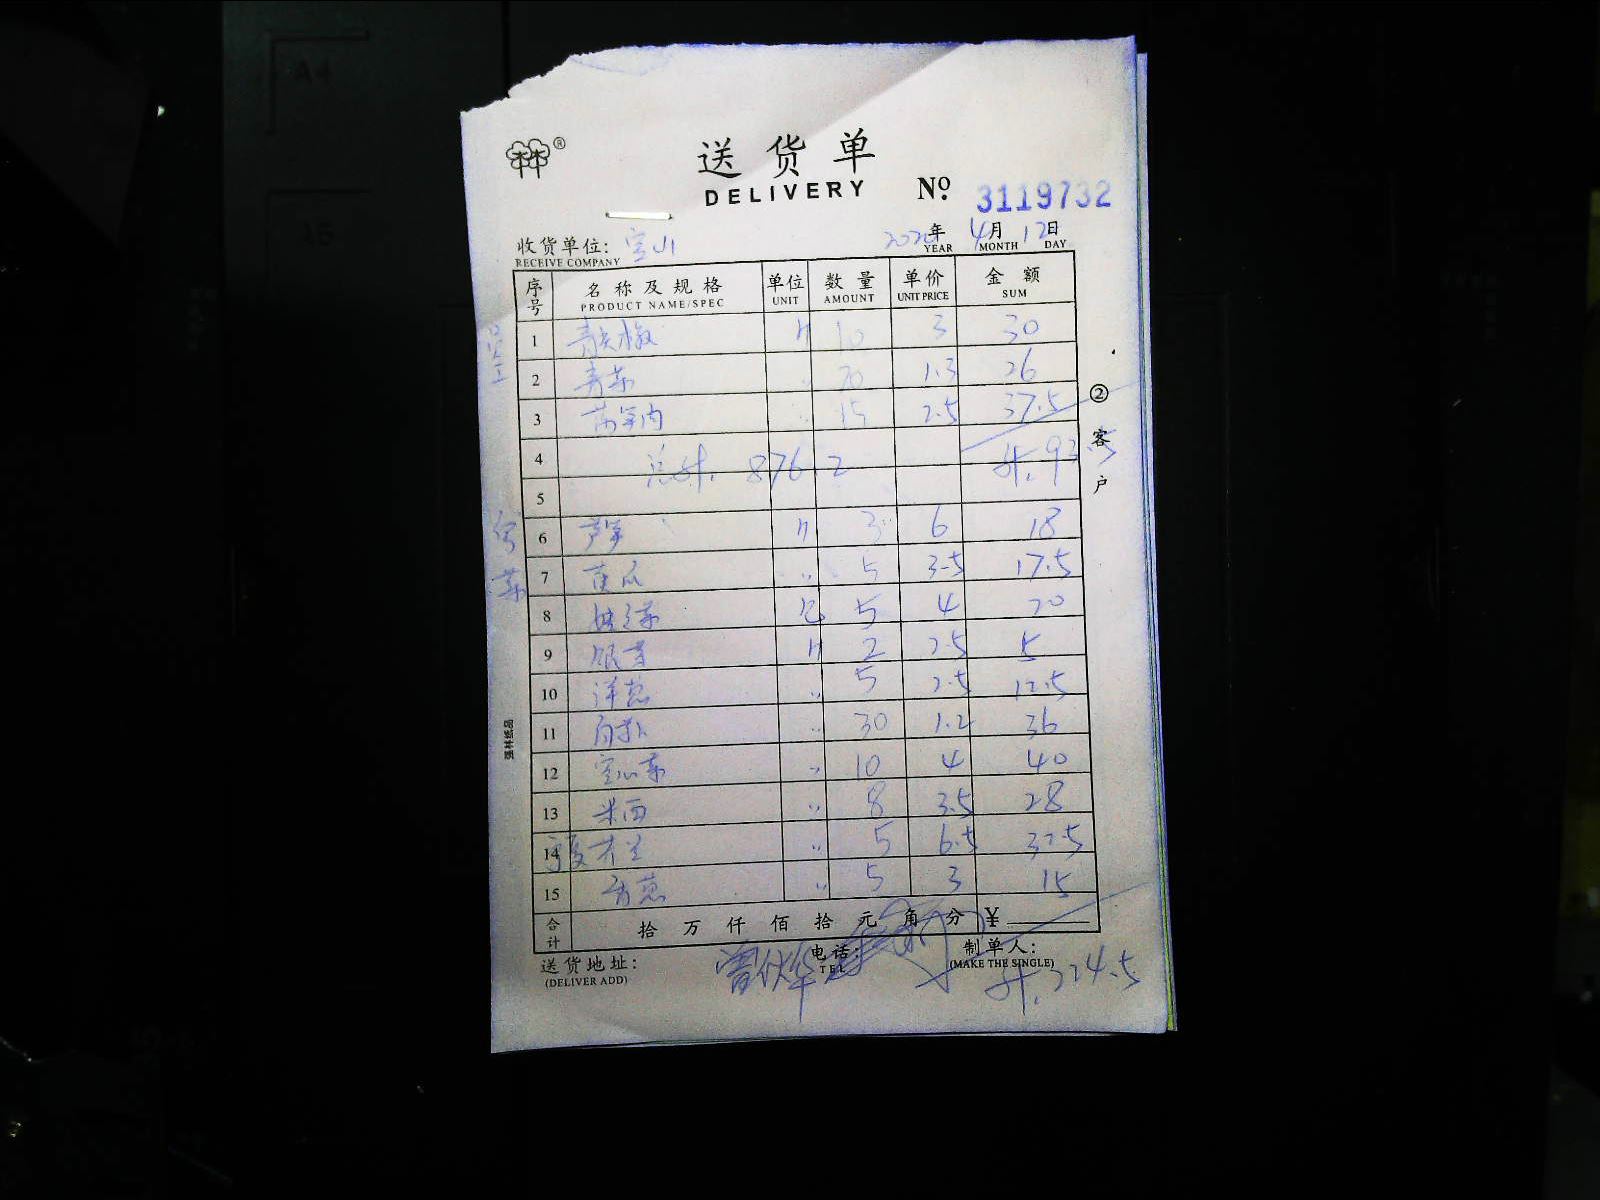 A4
A5
林®
送货单
DELIVERY
No. 3119732
收货单位: 宝山
RECEIVE COMPANY
年 4月 12日
YEAR MONTH DAY
序号 名称及规格 单位 数量 单价 金额
PRODUCT NAME/SPEC UNIT AMOUNT UNIT PRICE SUM
员工
1 青尖椒 斤 10 3 30
2 青菜 〃 20 1.3 26
3 莴笋肉 〃 15 2.5 37.5
4 总计. 876.2 计.93.5
5
客菜
6 芦笋 斤 3 6 18
7 黄瓜 〃 5 3.5 17.5
8 娃娃菜 包 5 4 20
9 银芽 斤 2 2.5 5
10 洋葱 〃 5 2.5 12.5
11 30 1.2 36
12 空心菜 〃 10 4 40
13 米西 〃 8 3.5 28
14 〃 5 6.5 32.5
15 香葱 〃 5 3 15
合计 拾 万 仟 佰 拾 元 角 分 ¥
送货地址: 电话: 制单人:
(DELIVER ADD) TEL (MAKE THE SINGLE)
计.224.5
②客户
强林纸品